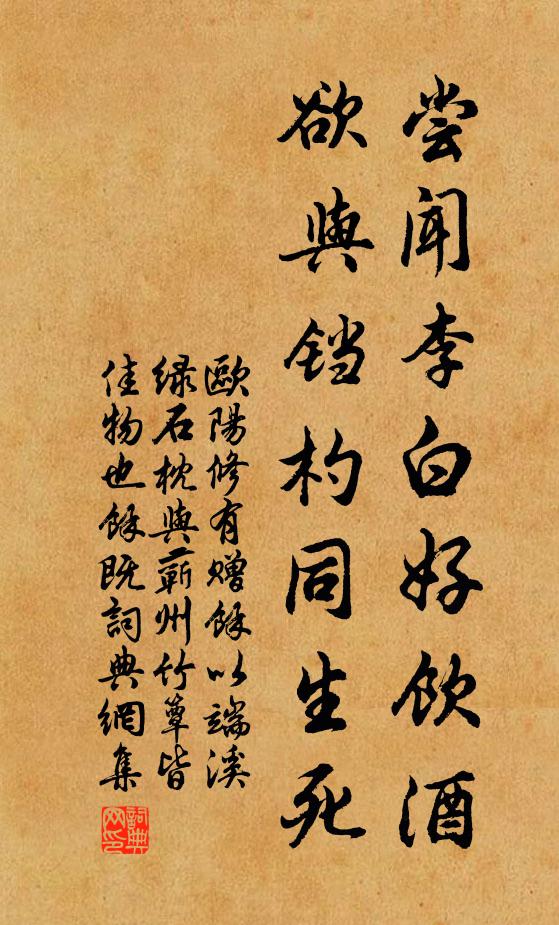 尝闻李白好饮酒
欲與铛杓同生死
歐陽修有赠馀以端溪
绿石枕與蕲州竹簟皆
佳物也馀既詞典網集
詞典
网印